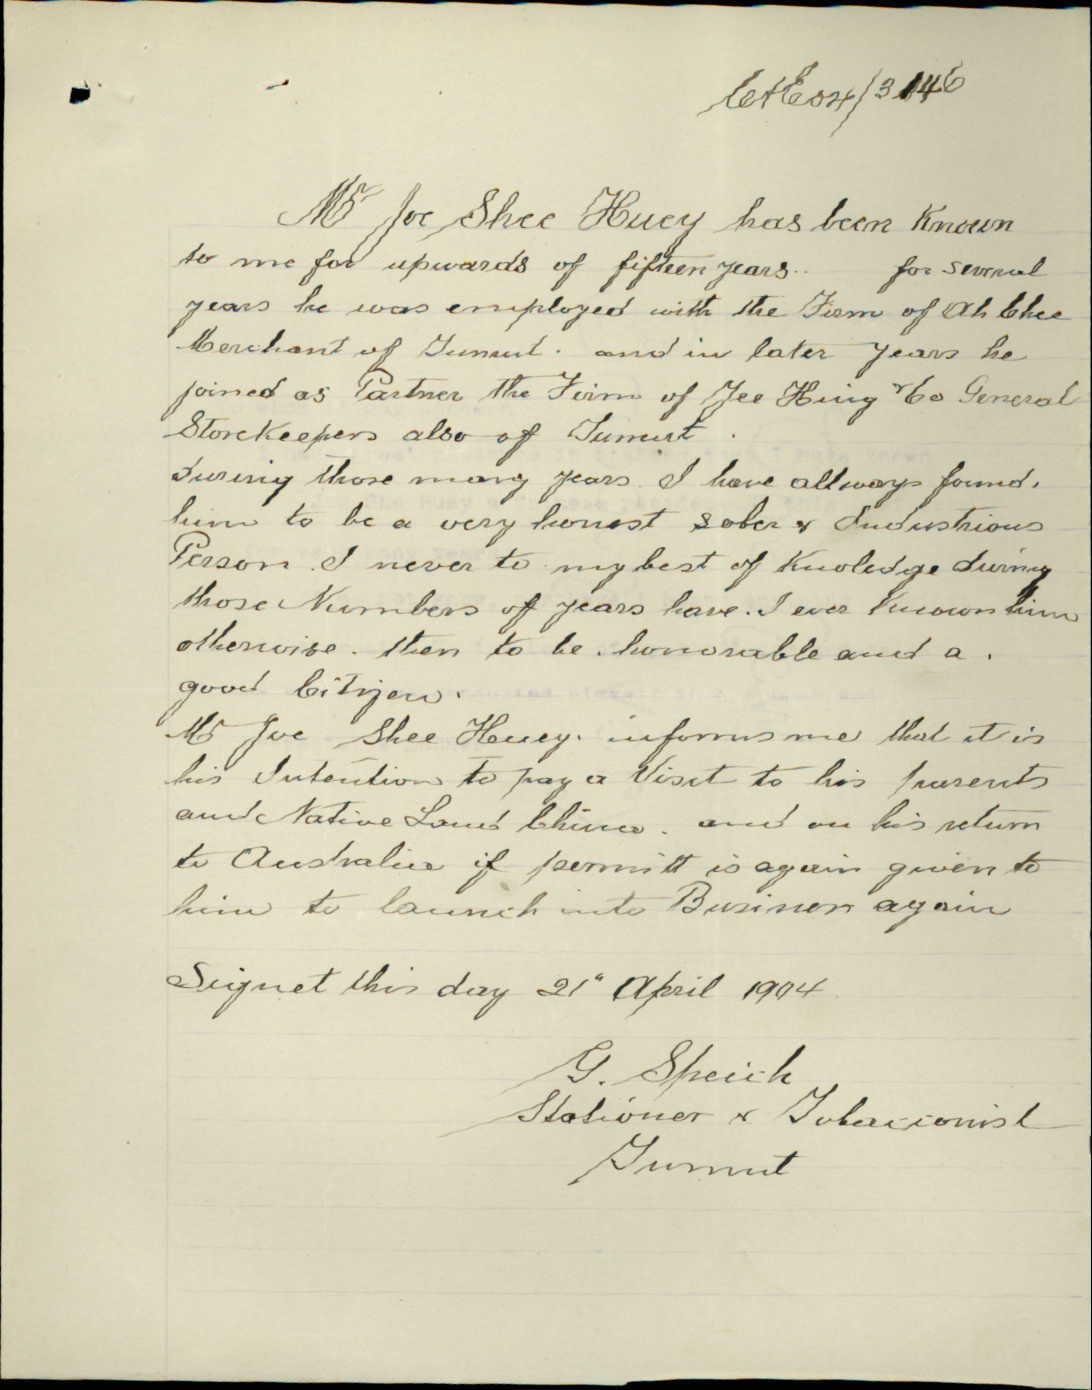 C+E 04/3146
Mr Joe Shee Huey has been Known
to me for upwards of fifteen years. for several
years he was employed with the Firm of Ah Chee
Merchant of Tumut. and in later years he
joined as Partner the Firm of Yee Hing & Co General
StoreKeepers also of Tumut.
during those many years I have allways found.
him to be a very honest sober & Industrious
Person. I never to my best of Knoledge during
those Numbers of years have. I ever Known him
otherwise. then to be. honorable and a.
good Citizen.
Mr Joe Shee Huey. informs me that it is
his Intention to pay a Visit to his parents
and Native Land China. and on his return
to Australia if permitt is again given to
him to launch into Business again
Signet this day 21" April 1904
G. Speich
Stationer & Tobacconist
Tumut